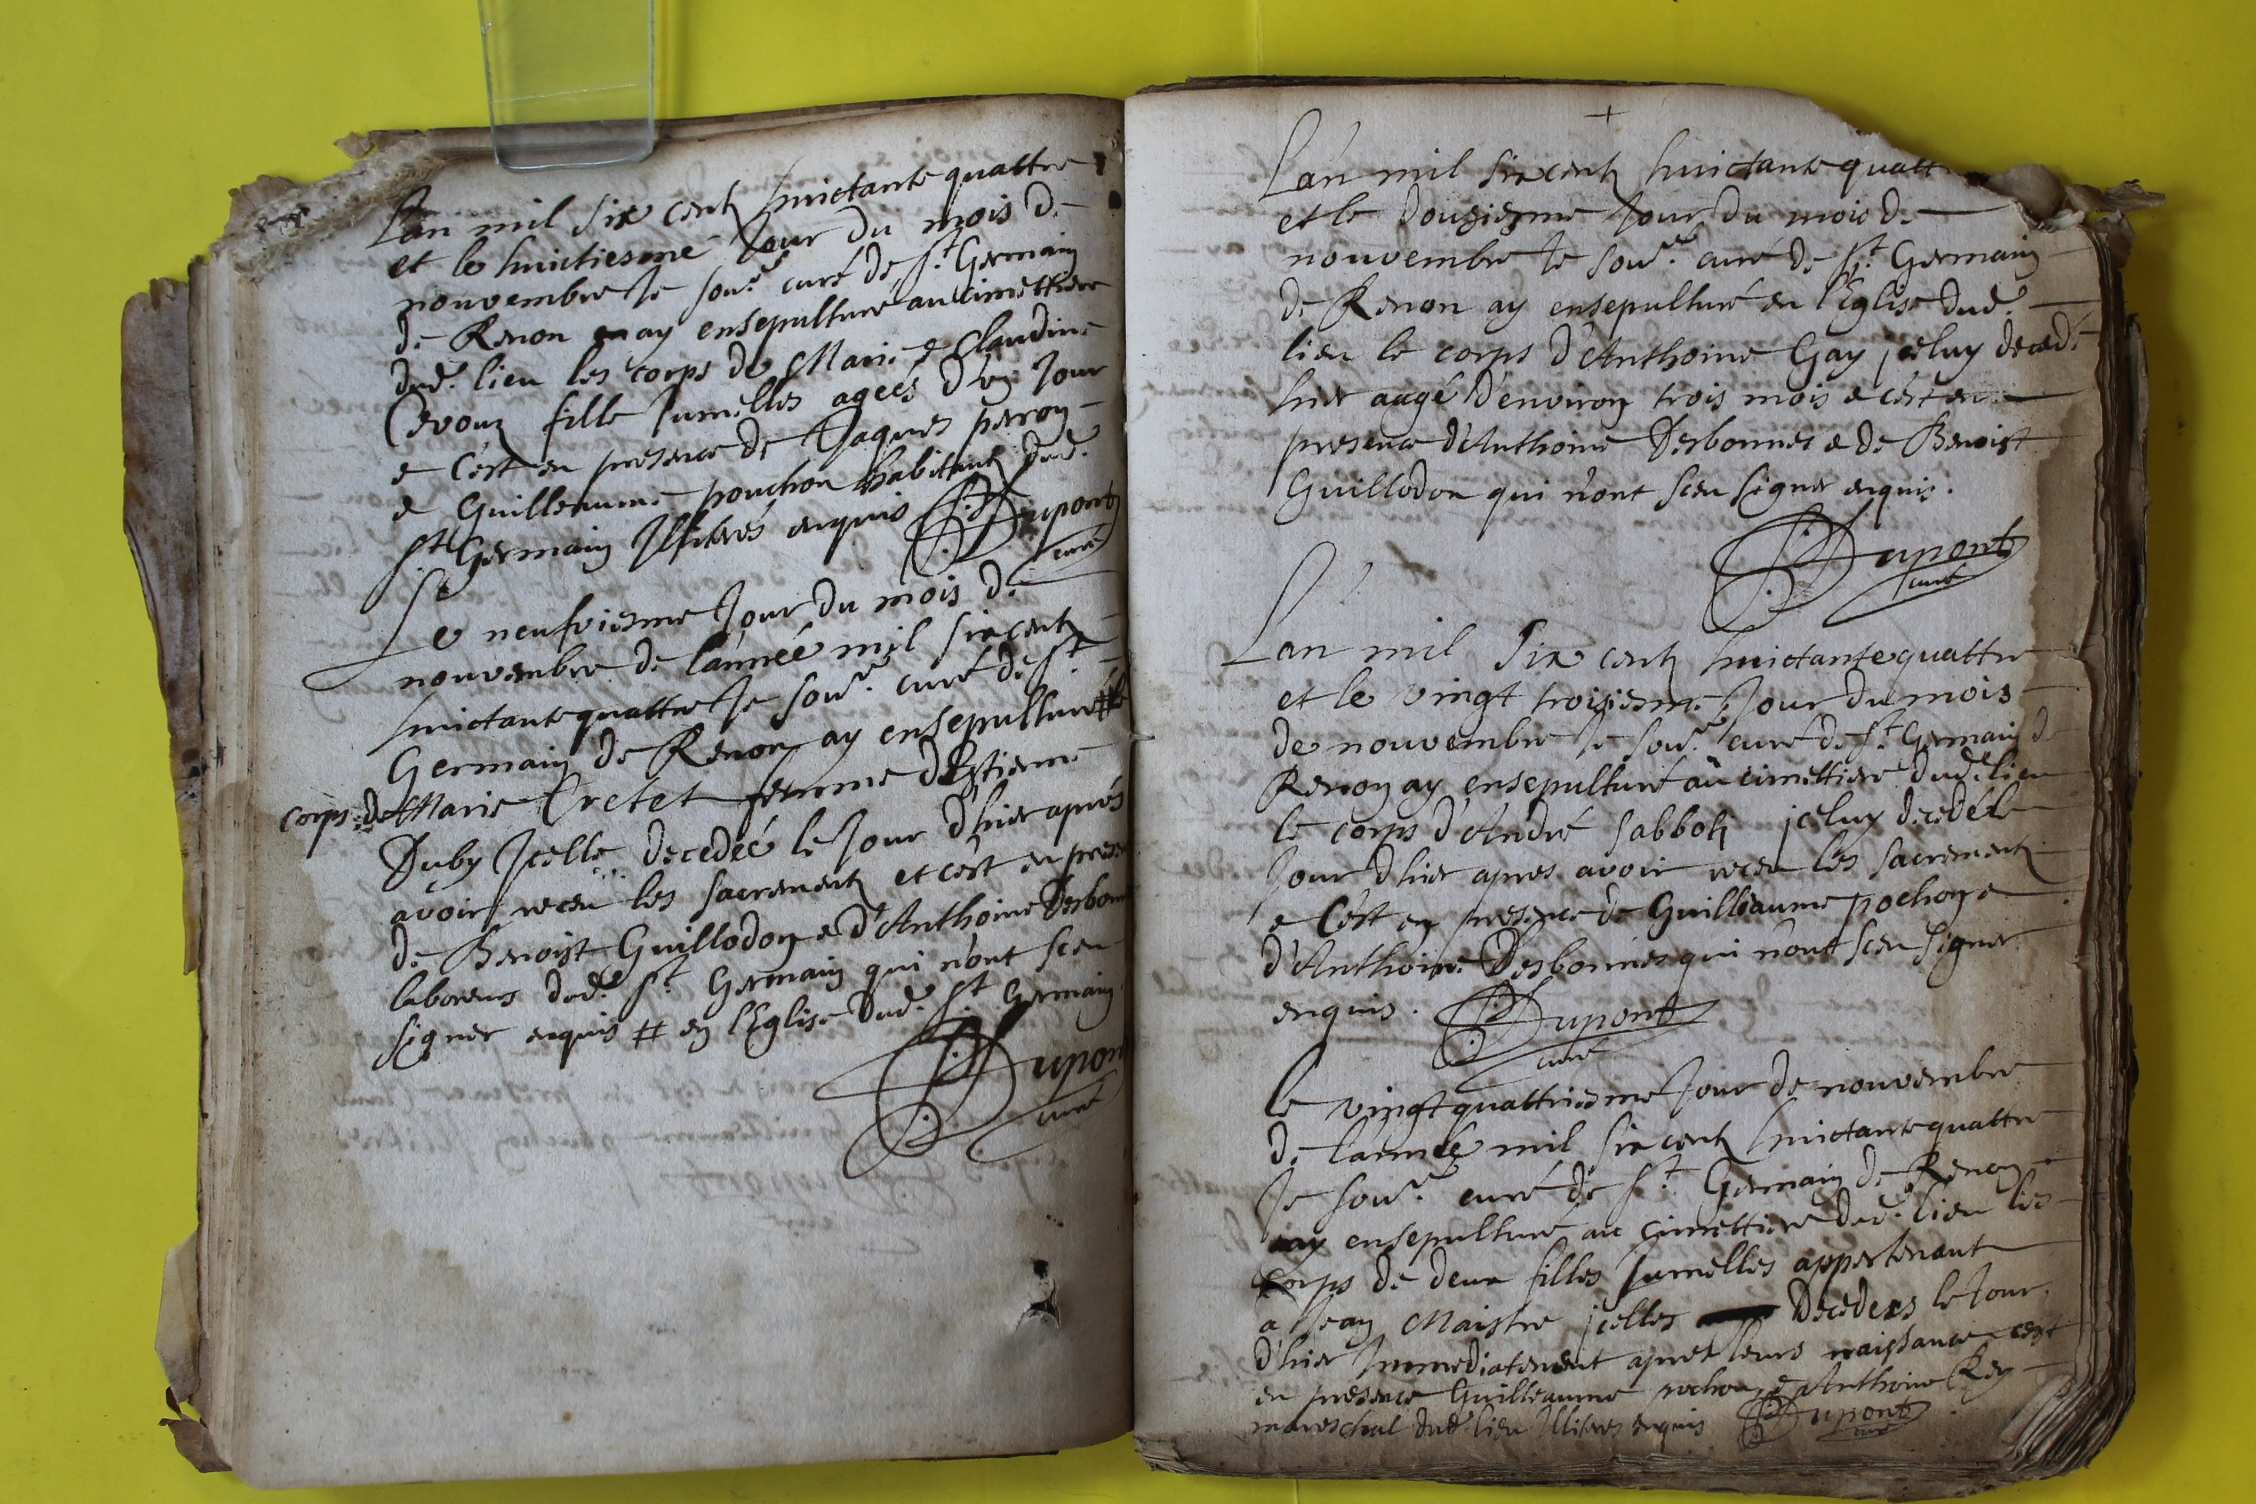 Lan mil six centz huictante quattre
et le huictiesme Jour du mois de
nouvembre Je sou.né curé de St. Germain
de Renon ay ensepulturé au cimettiere
dud. lieu les corps de Marie e Claudine
fille Jumelles ageés d'un Jour
e c'est en presence de Jaques perron
e Guilleaume pouchon habitantz dud.
St. Germain Illiterés enquis Dupont
curé
Le neufviesme Jour du mois de
nouvembre de l'année mil six centz
huictante quattre Je sou.né curé de St.
Germain de Renon ay ensepulturé # le
corps de Marie Cretet femme d'Estienne
Duby Jcelle decedeé le Jour d'hier aprés
avoir receu les sacrementz et c'est en presen
de Benoist Guillodon e d'Anthoine Desbonn
laboreurs dud. St. Germain qui n'ont sceu
signer enquis # en l'Eglise dud. St. Germain
Dupon
curé
+
Lan mil six centz huictante quatt
et le douziesme Jour du mois de
nouvembre Je sou.né curé de St. Germain
de Renon ay ensepulturé en l'Eglise dud.
lieu le corps d'Anthoine Gay jceluy decedé
hier aagé d'environ trois mois e c'est en
presence d'Anthoine Desbonnes e de Benoist
Guillodon qui n'ont sceu signer enquis.
Dupont
curé
Lan mil six centz huictante quattre
et le vingt troisiesme Jour du mois
de nouvembre Je sou.né curé de St. Germain de
Renon ay ensepulturé au cimettiere dud. lieu
le corps d'André Sabbotz jceluy decedé le
Jour d'hier apres avoir receu les sacrementz
e C'est en presence de Guilleaume pochon e
d'Anthoine Desbonnes qui n'ont sceu signer
enquis. Dupont
curé
Le vingt quattriesme Jour de nouvembre
de l'année mil six centz huictante quattre
Je sou.né curé de St. Germain de Renon
ay ensepulturé au cimettiere dud. lieu les
corps de deux filles Jumelles appertenant
a Jean Maistre jcelles decedeés le Jour
d'hier Immediatement apres leurs naissance c'est
en presence Guilleaume pochon e Anthoine Rey
mareschal dud. lieu Illiterés enquis Dupont
curé